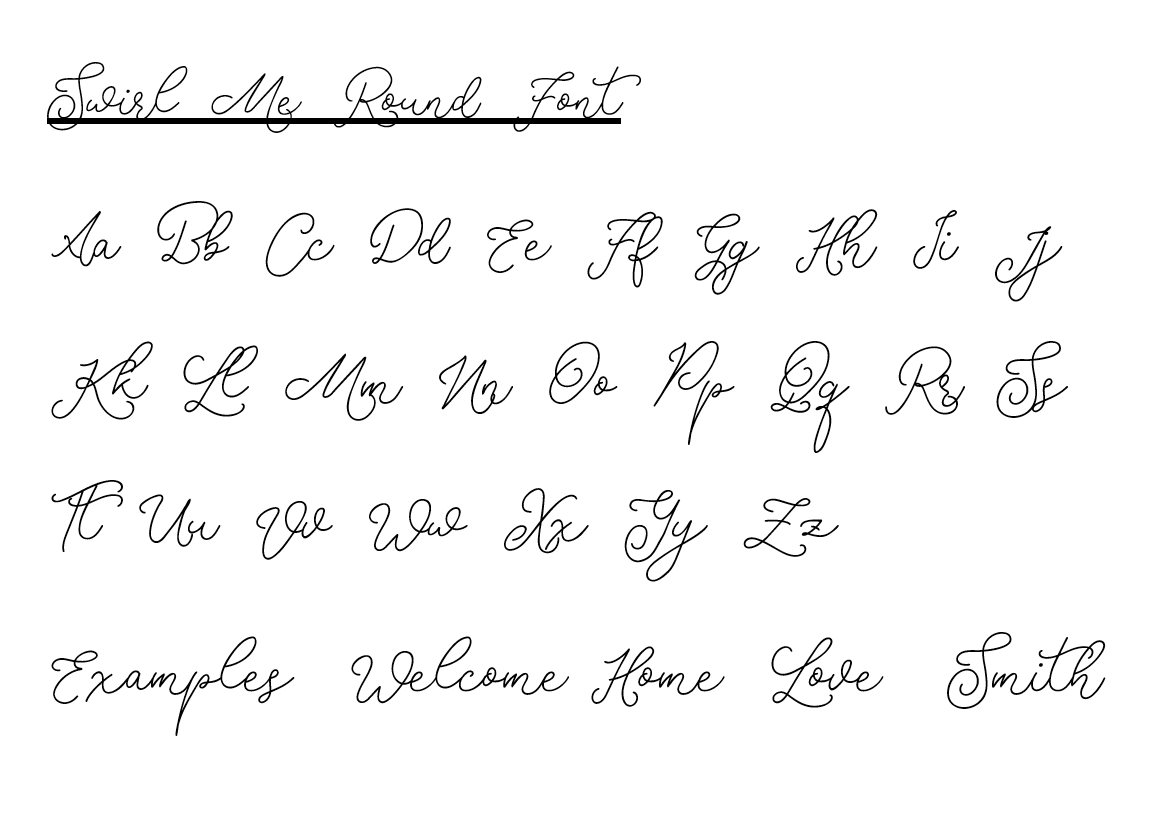 Swirl Me Round Font
Aa Bb Cc Dd Ee Ff Gg Hh Ii Jj
Kk Ll Mm Nn Oo Pp Qq Rr Ss
Tt Uu Vv Ww Xx Yy Zz
Examples Welcome Home Love Smith